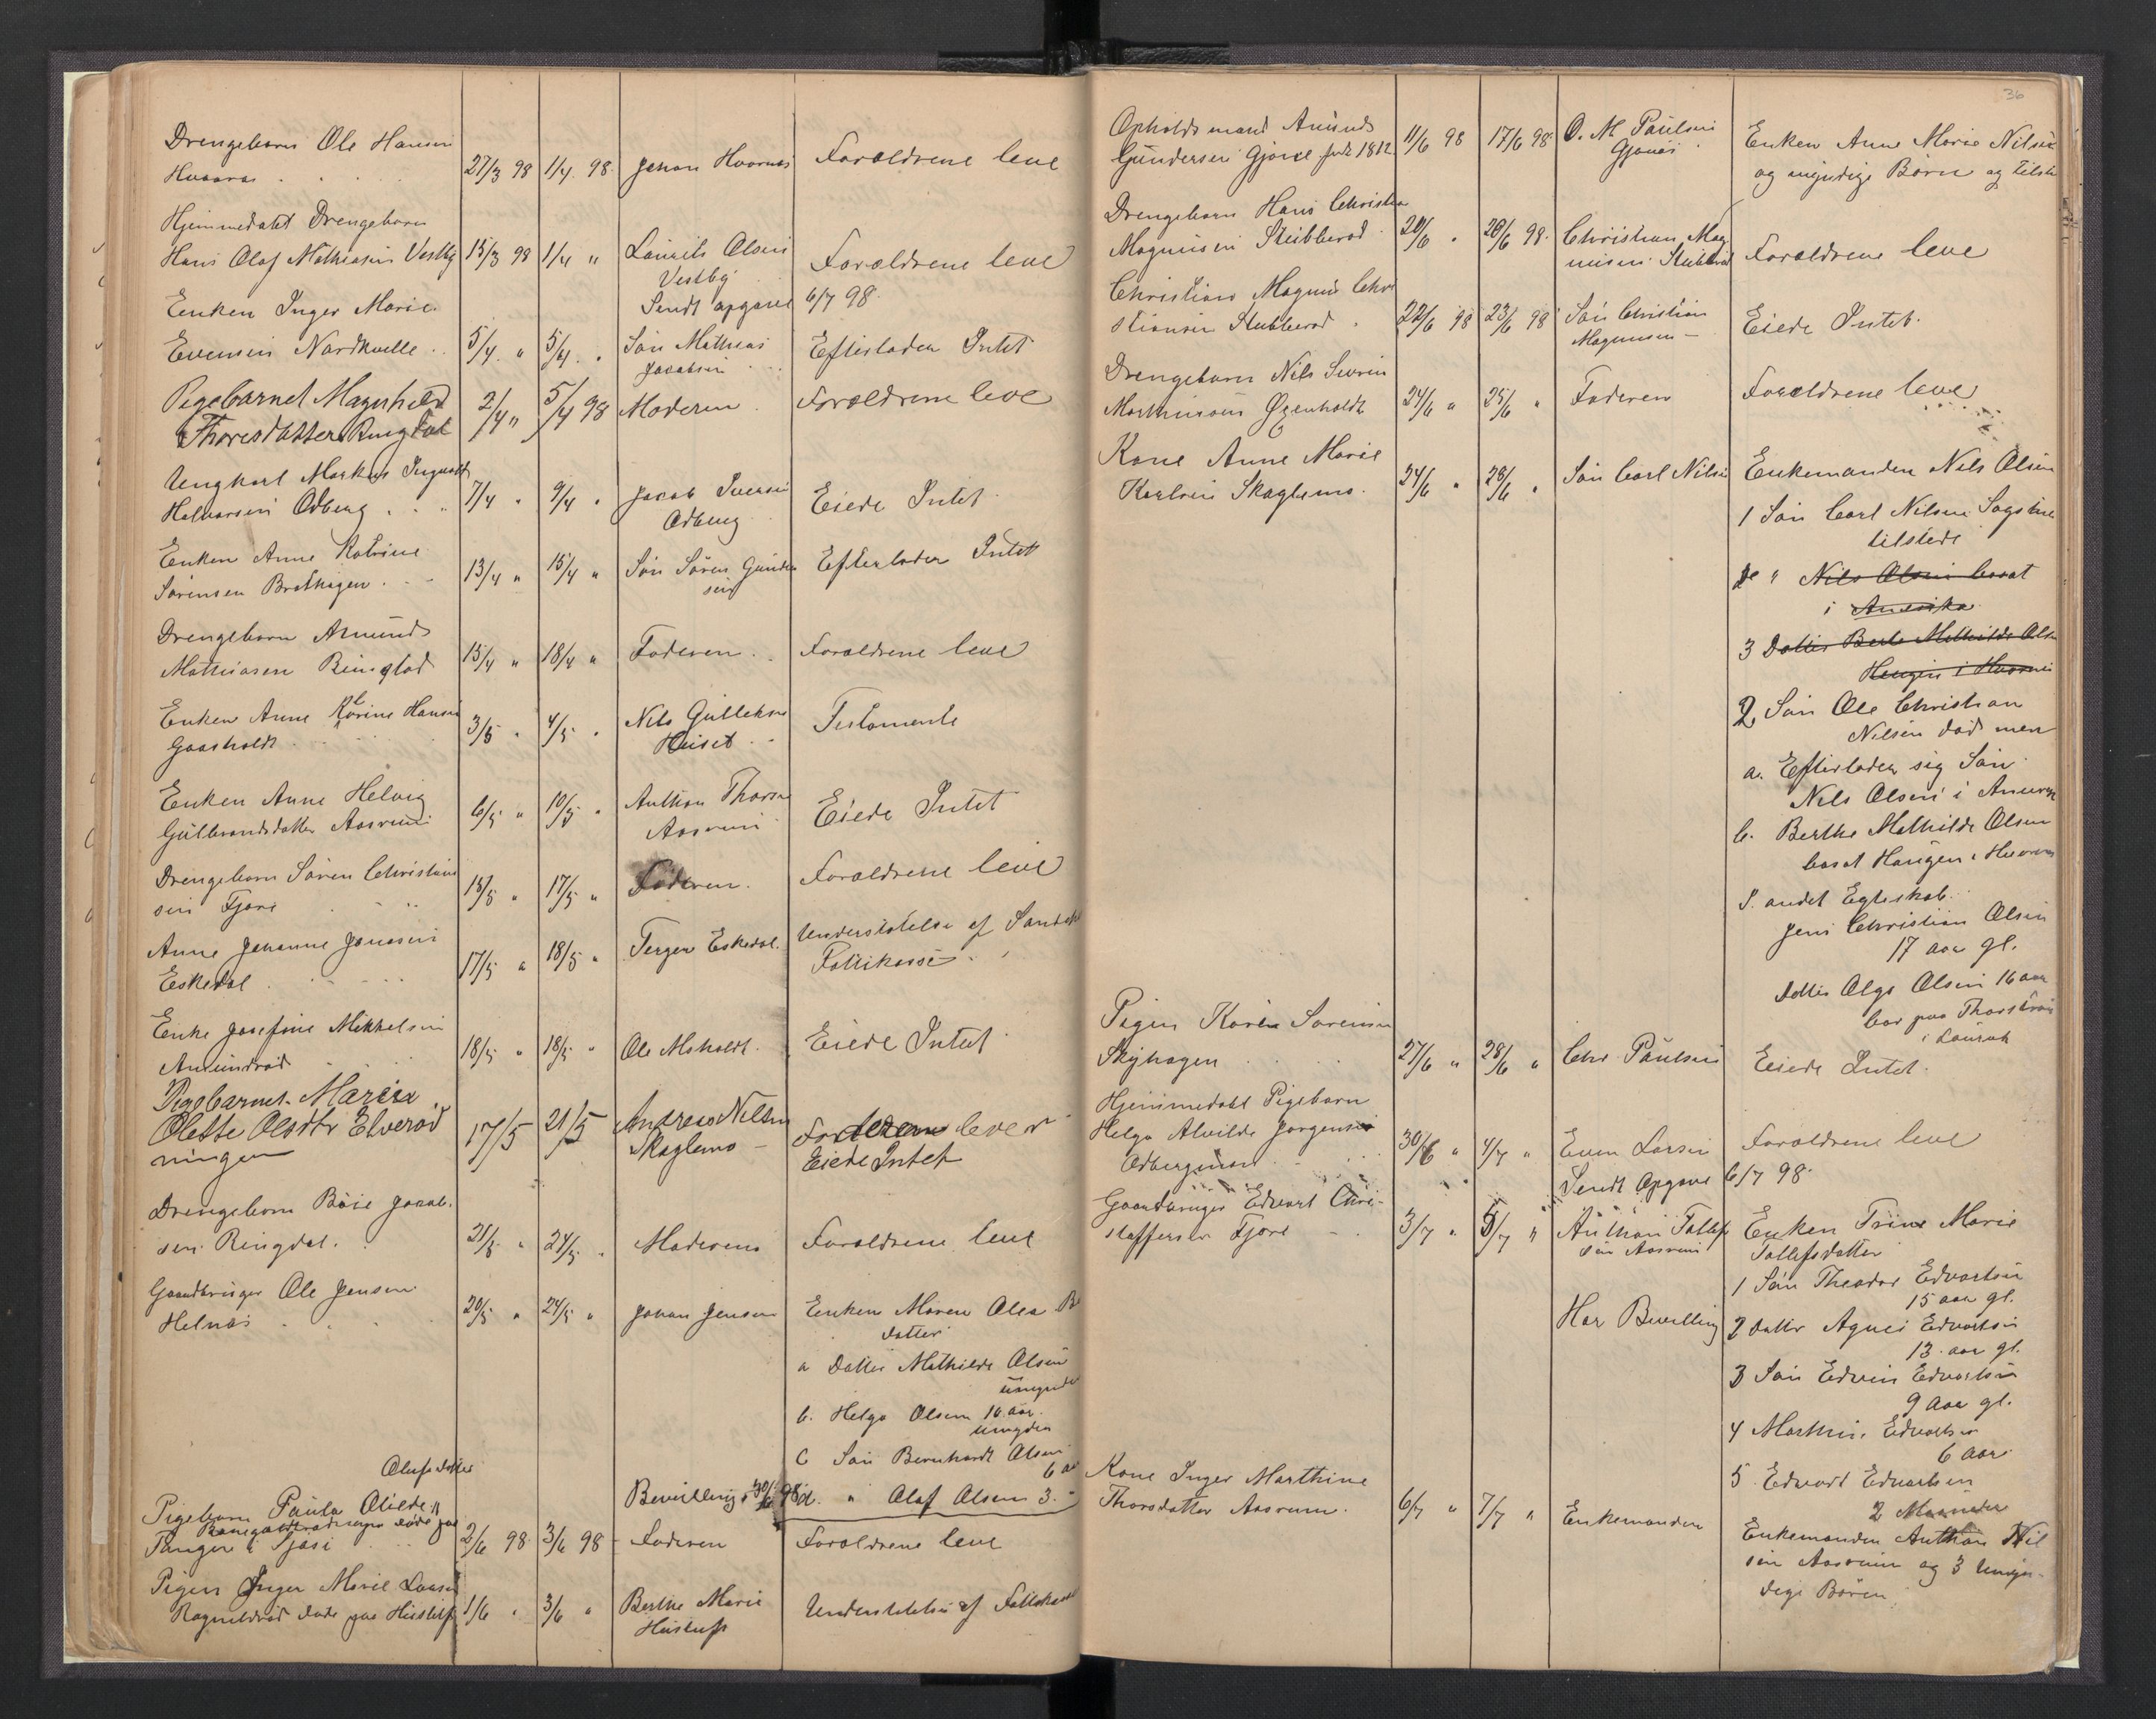 Drengebarn Ole Hansen
Hvaara
27/3 98 1/4 98 Johan Hvarnes Forældrene leve
Hjemmedøbt Drengebarn
Hans Olaf Mathiasen Vestby 15/3 98 1/4 " Laurits Olsen Forældrene leve
Vestby
Sendt opgave 6/7 98.
Enken Inger Marie
Evensen Nordkvelle 5/4 " 5/4 " Søn Mathias Efterlader Intet
Jacobsen
Pigebarnet Magnhild
Thoresdatter Ringdal 2/4 " 5/4 98 Moderen Forældrene leve
Ungkarl Markus Ingvald
Halvorsen Odberg 7/4 " 9/4 " Jacob Iversen Eiede Intet
Odberg
Enken Anne Katrine
Sørensen Brathagen 13/4 " 15/4 " Søn Søren Gunder Efterlader Intet
sen
Drengebarn Amund
Mathiasen Rimstad 15/4 " 18/4 " Faderen Forældrene leve
Enken Anne Karine Hansen
Gaasholt 3/5 " 4/5 " Nils Gulleksen Testamente
Huset
Enken Anne Helvig
Gulbrandsdatter Aasrum 6/5 " 10/5 " Anthon Thorsen Eiede Intet
Aasrum
Drengebarn Søren Christian
sen Fjære 13/5 " 17/5 " Faderen. Forældrene leve
Anne Johanne Jonasen
Eskedal 17/5 " 18/5 " Terger Eskedal. Understøtelse af Sandeh
Fattikasse
Enke Josefine Mikkelsen
Amundrød 18/5 " 18/5 " Ole Moholdt. Eiede Intet
Pigebarnet Maria
Olette Olsdtr Elverød
ningen 17/5 21/5 Andreas Nilsen Forældrene lever
Skaglemo Eiede Intet
Drengebarn Bøie Jacob.
sen Ringdal. 21/5 " 24/5 " Moderens Forældrene leve
Gaardbruger Ole Jensen
Helnæs 20/5 " 24/5 " Johan Jensen Enken Maren Olea
datter
a Datter Mathilde Olsen
umyndi
b. Helga Olsen 16 aar.
umyndi
C Søn Bernhardt Olsen
6 aar
Bevillling 30/6 98 d. " Olaf Olsen 3.
Olufsdatter
Pigebarn Paula Otilde
døde paa
Tanger i Tjøse 2/6 98 3/6 98 Faderen Forældrene leve
Pigen Inger Marie Larsen
Ragnildrød døde paa Hustuft 1/6 " 3/6 " Berthe Marie Understøtelse af Fattikasse
Hustuft
36
Opholdsmand Amund
Gundersen Gjønes født 1812 11/6 98 17/6 98. O. M. Paulsen Enken Anne Marie Nilsen
Gjønes og myndige Børn og tilste
Drengebarn Hans Christian
Magnusen Stubberød 20/6 " 26/6 98. Christian Mag Forældrene leve
nusen Stubberød
Christian Magnus Chri
stiansen Stubberød 22/6 98 23/6 98 Søn Christian Eiede Intet.
Magnusen
Drengebarn Nils Severin
Marthinsen Øgenholdt 24/6 " 25/6 " Faderen Forældrene leve
Kone Anne Marie
Karlsen Skaglemo. 24/6 " 28/6 " Søn Carl Nilsen Enkemanden Nils Olsen
1 Søn Carl Nilsen Sagstue
tilstede
2 " Nils Olsen bosat
i Amerika
3 Datter Berte Mathilde Olsen
Haugen i Hvarnes
2. Søn Ole Christian
Nilsen død men
a. Efterlader sig Søn
Nils Olsen i Amerik
b. Berthe Mathilde Olsen
bosat Haugen i Hvarnes
I. andet Egteskab.
Jens Christian Olsen
17 aar gl.
Datter Olga Olsen 16 aar
bor paa Thorstrøm
i Laurvik
Pigen Karen Sørensen
Skyhagen 27/6 " 28/6 " Chr. Paulsen Eiede Intet.
Hjemmedøbt Pigebarn
Helga Alvilde Jørgensen
Odbergmoen 30/6 " 4/7 " Even Larsen Forældrene leve
Sendt Opgave 6/7 98.
Gaardbruger Edvart Chri-
stoffersen Fjære 3/7 " 5/7 " Anthon Tollef Enken Trine Marie
sen Aasrum Tollefsdatter
1 Søn Theodor Edvartsen
15 aar gl.
Har Bevilling 2 Datter Agnes Edvartsen
13. aar gl.
3 Søn Edvin Edvartsen
9 aar gl.
4 Marthin Edvartsen
6 aar.
5. Edvart Edvartsen
2 Maaneder
Kone Inger Marthine
Thorsdatter Aasrum. 6/7 " 7/7 " Enkemanden Enkemanden Anthon Nil
sen Aasrum og 3 Umyn-
dige Børn